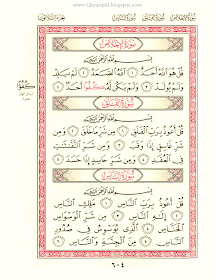 www.Quranpdf.blogspot.com
سُورَةُ الإِخْلَاصِ سُورَةُ الفَلَقِ سُورَةُ النَّاسِ
سُورَةُ الإِخْلَاصِ
بِسْمِ اللَّهِ الرَّحْمَٰنِ الرَّحِيمِ
قُلْ هُوَ اللَّهُ أَحَدٌ ١ اللَّهُ الصَّمَدُ ٢ لَمْ يَلِدْ
وَلَمْ يُولَدْ ٣ وَلَمْ يَكُن لَّهُ كُفُوًا أَحَدٌ ٤
كُفُوًا
سُورَةُ الفَلَقِ
بِسْمِ اللَّهِ الرَّحْمَٰنِ الرَّحِيمِ
قُلْ أَعُوذُ بِرَبِّ الْفَلَقِ ١ مِن شَرِّ مَا خَلَقَ ٢ وَمِن
شَرِّ غَاسِقٍ إِذَا وَقَبَ ٣ وَمِن شَرِّ النَّفَّاثَاتِ
فِي الْعُقَدِ ٤ وَمِن شَرِّ حَاسِدٍ إِذَا حَسَدَ ٥
سُورَةُ النَّاسِ
بِسْمِ اللَّهِ الرَّحْمَٰنِ الرَّحِيمِ
قُلْ أَعُوذُ بِرَبِّ النَّاسِ ١ مَلِكِ النَّاسِ
٢ إِلَٰهِ النَّاسِ ٣ مِن شَرِّ الْوَسْوَاسِ
الْخَنَّاسِ ٤ الَّذِي يُوَسْوِسُ فِي صُدُورِ
النَّاسِ ٥ مِنَ الْجِنَّةِ وَالنَّاسِ ٦
٦٠٤